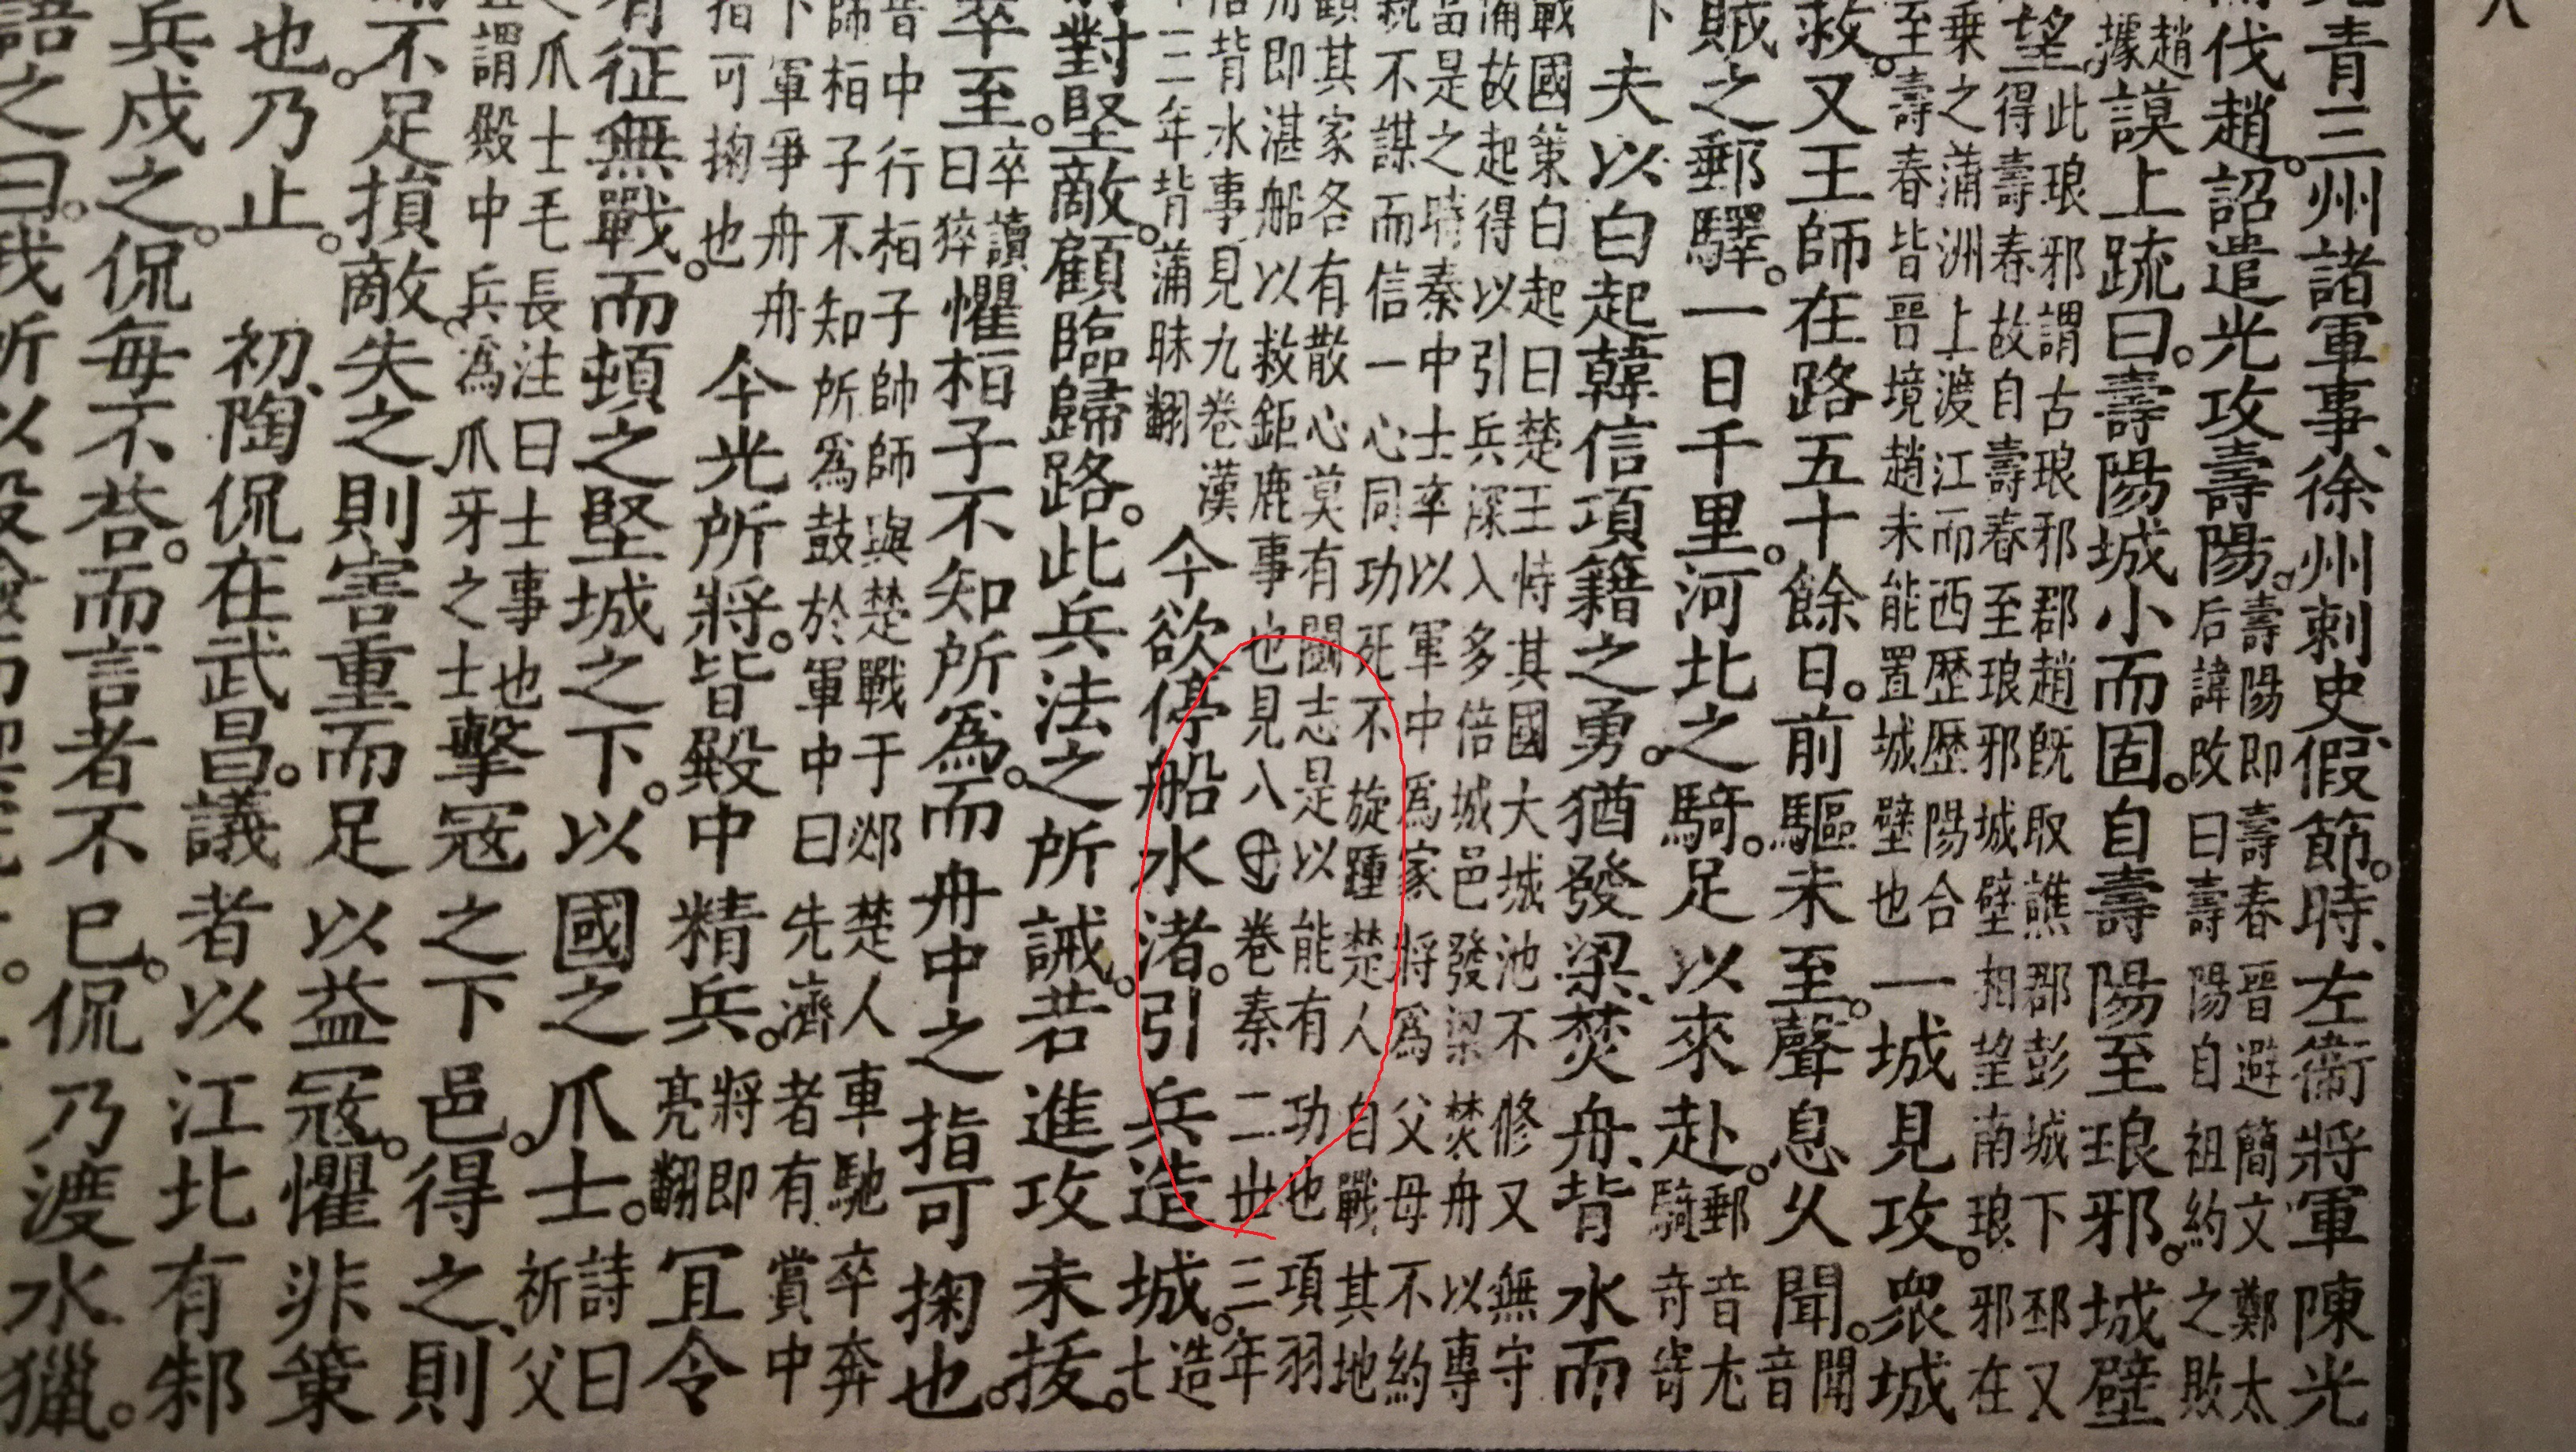 八
青三州諸軍事、徐州刺史、假節。時、左衞將軍陳光
伐趙。詔遣光攻壽陽。
壽陽即壽春晉避簡文鄭太
后諱改曰壽陽自祖約之敗
趙
據
謨上疏曰。壽陽城小而固。自壽陽至琅邪。城壁
望。
此琅邪謂古琅邪郡趙既取譙郡彭城下邳又
得壽春故自壽春至琅邪城壁相望南琅邪在
乗之蒲洲上渡江而西歴歴陽合
至壽春皆晉境趙未能置城壁也
一城見攻。衆城
救。又王師在路五十餘日。前驅未至。聲息乆聞。
聞
音
賊之郵驛。一日千里。河北之騎。足以來赴。
郵音尤
騎奇寄
下
夫以白起韓信項籍之勇。猶發梁、焚舟、背水而
戰國策白起曰楚王恃其國大城池不修又無守
備故起得以引兵深入多倍城邑發梁焚舟以專
當是之時秦中士卒以軍中爲家將爲父母不約
親不謀而信一心同功死不旋踵楚人自戰其地
顧其家各有散心莫有鬭志是以能有功也項羽
用即湛船以救鉅鹿事也見八卷秦二世三年
信背水事見九卷漢
十二年背蒲昧翻
今欲停船水渚。引兵造城。
造
七
對堅敵。顧臨歸路。此兵法之所誡。若進攻未拔。
卒至。
卒讀
曰猝
懼桓子不知所爲。而舟中之指可掬也。
晉中行桓子帥師與楚戰于邲楚人車馳卒奔
師桓子不知所爲鼓於軍中曰先濟者有賞中
下軍爭舟舟
指可掬也
今光所將。皆殿中精兵。
將即
亮翻
宜令
有征無戰。而頓之堅城之下。以國之爪士。
詩曰
祈父
之爪士毛長注曰士事也
謂殿中兵爲爪牙之士
擊冦之下邑。得之、則
不足損敵。失之、則害重而足以益冦。懼非策
也。乃止。 初、陶侃在武昌。議者以江北有邾
兵戍之。侃每不荅。而言者不已。侃乃渡水獵。
語之曰。我所以設